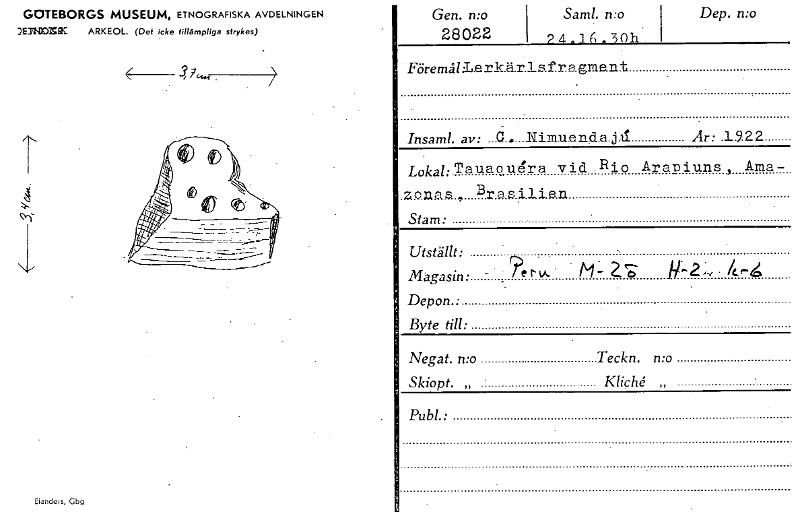 GÖTEBORGS MUSEUM, ETNOGRAFISKA AVDELNINGEN
ARKEOL. (Det icke tillämpliga strykes)
3,7 cm.
3,4 cm.
Elanders, Gbg
Gen. n:o Saml. n:o Dep. n:o
28022 24.16.30h
Föremål: Lerkärlsfragment
Insaml. av: C. Nimuendajú År: 1922
Lokal: Tauaquéra vid Rio Arapiuns, Ama-
zonas, Brasilien
Stam:
Utställt:
Magasin: Peru M-25 H-2 k-6
Depon.:
Byte till:
Negat. n:o Teckn. n:o
Skiopt. „ Kliché „
Publ.: